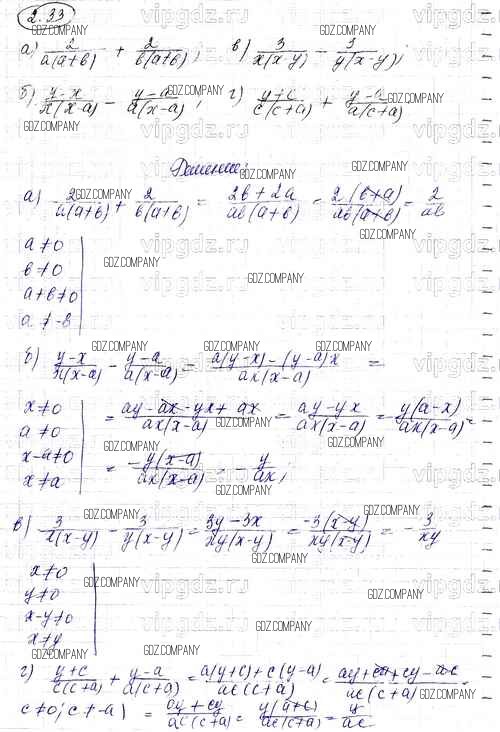 2.33
а) 2/a(a+b) + 2/b(a+b); в) 3/x(x-y) - 3/y(x-y);
б) y-x/x(x-a) - y-a/a(x-a); г) y+c/c(c+a) + y-a/a(c+a)
Решение:
а) 2/a(a+b) + 2/b(a+b) = 2b+2a/ab(a+b) = 2(b+a)/ab(a+b) = 2/ab
a≠0
b≠0
a+b≠0
a≠-b
б) y-x/x(x-a) - y-a/a(x-a) = a(y-x)-(y-a)x/ax(x-a) =
x≠0 = ay-ax-yx+ax/ax(x-a) = ay-yx/ax(x-a) = y(a-x)/ax(x-a) =
a≠0
x-a≠0 = -y(x-a)/ax(x-a) = -y/ax;
x≠a
в) 3/x(x-y) - 3/y(x-y) = 3y-3x/xy(x-y) = -3(x-y)/xy(x-y) = -3/xy
x≠0
y≠0
x-y≠0
x≠y
г) y+c/c(c+a) + y-a/a(c+a) = a(y+c)+c(y-a)/ac(c+a) = ay+ca+cy-ac/ac(c+a)
c≠0; c≠-a) = ay+cy/ac(c+a) = y(a+c)/ac(c+a) = y/ac
GDZ.COMPANY
vipgdz.ru